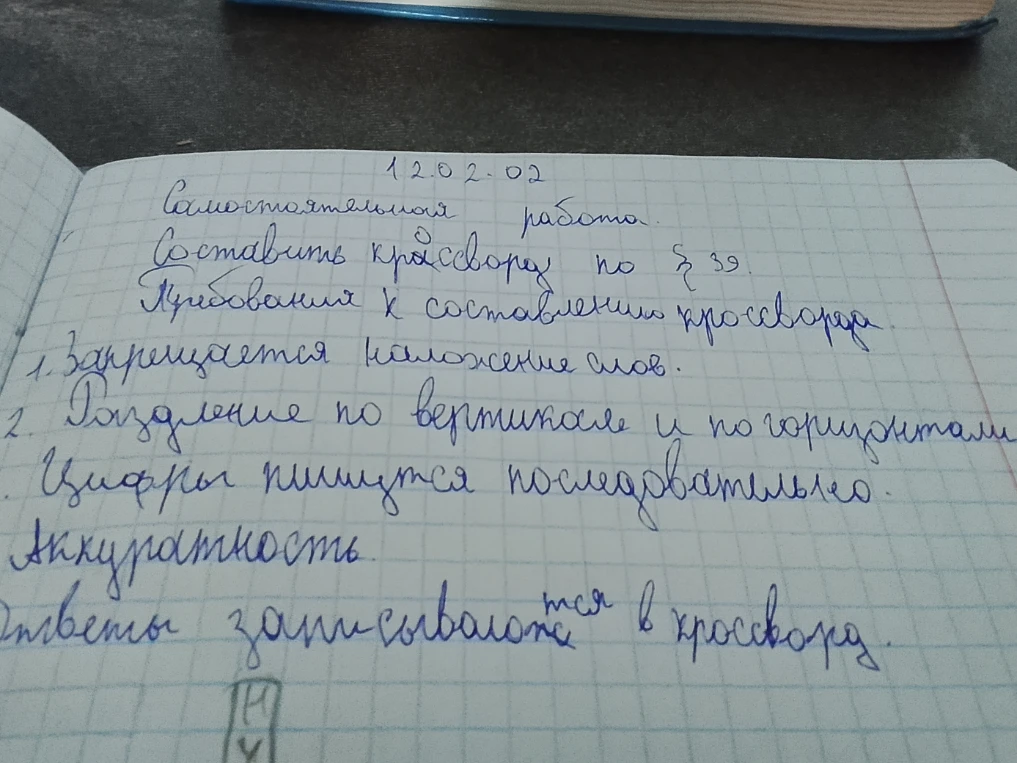 12.02.02
Самостоятельная работа.
Составить кроссворд по § 39.
Требования к составлению кроссворда.
1. Запрещается наложение слов.
2. Разделение по вертикале и по горизонтали
. Цифры пишутся последовательно.
Аккуратность.
Ответы записываются в кроссворд.
Н
У